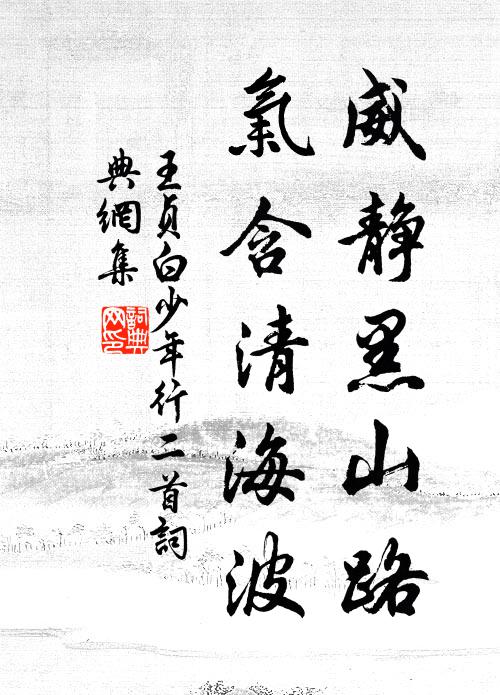 威静黑山路
氣含清海波
王貞白少年行二首詞
典網集
詞典
网印